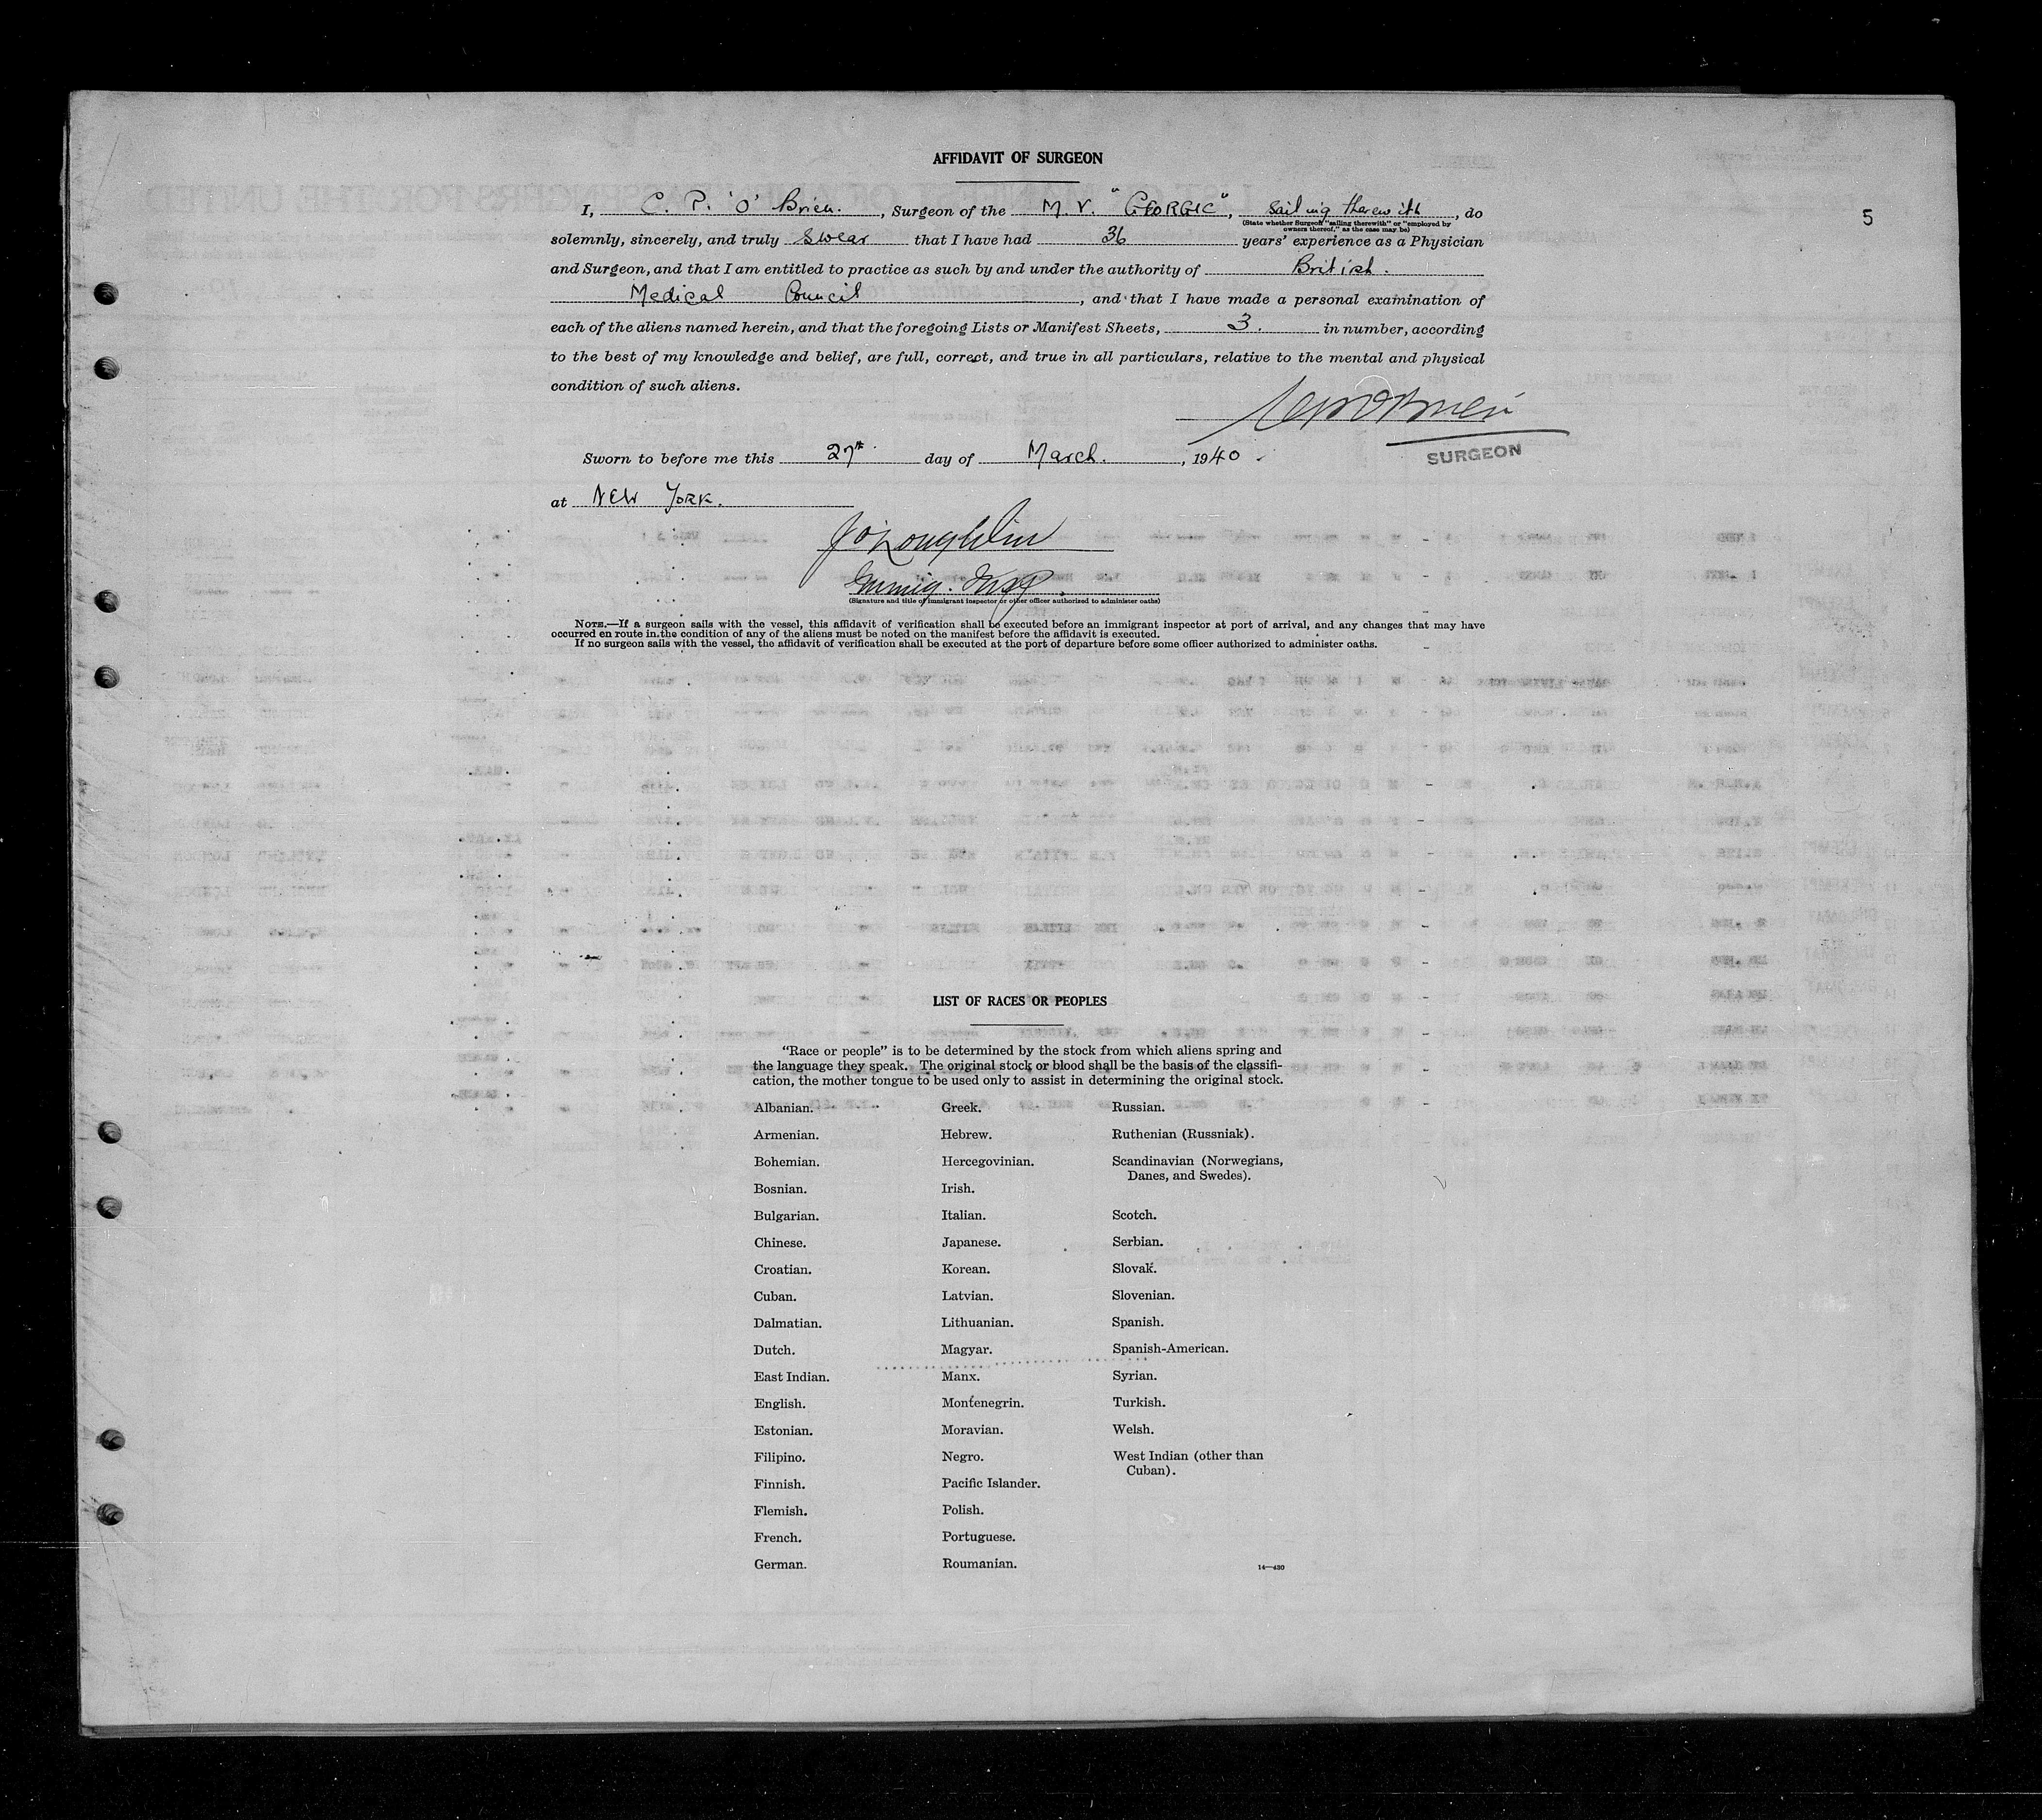 AFFIDAVIT OF SURGEON
5
I, C. P. 'O' Brien. , Surgeon of the M. V. "GEORGIC", sailing therewith , do
(State whether Surgeon "sailing therewith" or "employed by
owners thereof," as the case may be)
solemnly, sincerely, and truly swear that I have had 36 years' experience as a Physician
and Surgeon, and that I am entitled to practice as such by and under the authority of British.
Medical Council , and that I have made a personal examination of
each of the aliens named herein, and that the foregoing Lists or Manifest Sheets, 3. in number, according
to the best of my knowledge and belief, are full, correct, and true in all particulars, relative to the mental and physical
condition of such aliens.
SURGEON
Sworn to before me this 27th day of March. , 1940
at NEW YORK.
J O'Loughlin
Immig. Insp.
(Signature and title of immigrant inspector or other officer authorized to administer oaths)
NOTE.—If a surgeon sails with the vessel, this affidavit of verification shall be executed before an immigrant inspector at port of arrival, and any changes that may have
occurred en route in the condition of any of the aliens must be noted on the manifest before the affidavit is executed.
If no surgeon sails with the vessel, the affidavit of verification shall be executed at the port of departure before some officer authorized to administer oaths.
LIST OF RACES OR PEOPLES
"Race or people" is to be determined by the stock from which aliens spring and
the language they speak. The original stock or blood shall be the basis of the classifi-
cation, the mother tongue to be used only to assist in determining the original stock.
Albanian.
Armenian.
Bohemian.
Bosnian.
Bulgarian.
Chinese.
Croatian.
Cuban.
Dalmatian.
Dutch.
East Indian.
English.
Estonian.
Filipino.
Finnish.
Flemish.
French.
German.
Greek.
Hebrew.
Hercegovinian.
Irish.
Italian.
Japanese.
Korean.
Latvian.
Lithuanian.
Magyar.
Manx.
Montenegrin.
Moravian.
Negro.
Pacific Islander.
Polish.
Portuguese.
Roumanian.
Russian.
Ruthenian (Russniak).
Scandinavian (Norwegians,
Danes, and Swedes).
Scotch.
Serbian.
Slovak.
Slovenian.
Spanish.
Spanish-American.
Syrian.
Turkish.
Welsh.
West Indian (other than
Cuban).
14—430